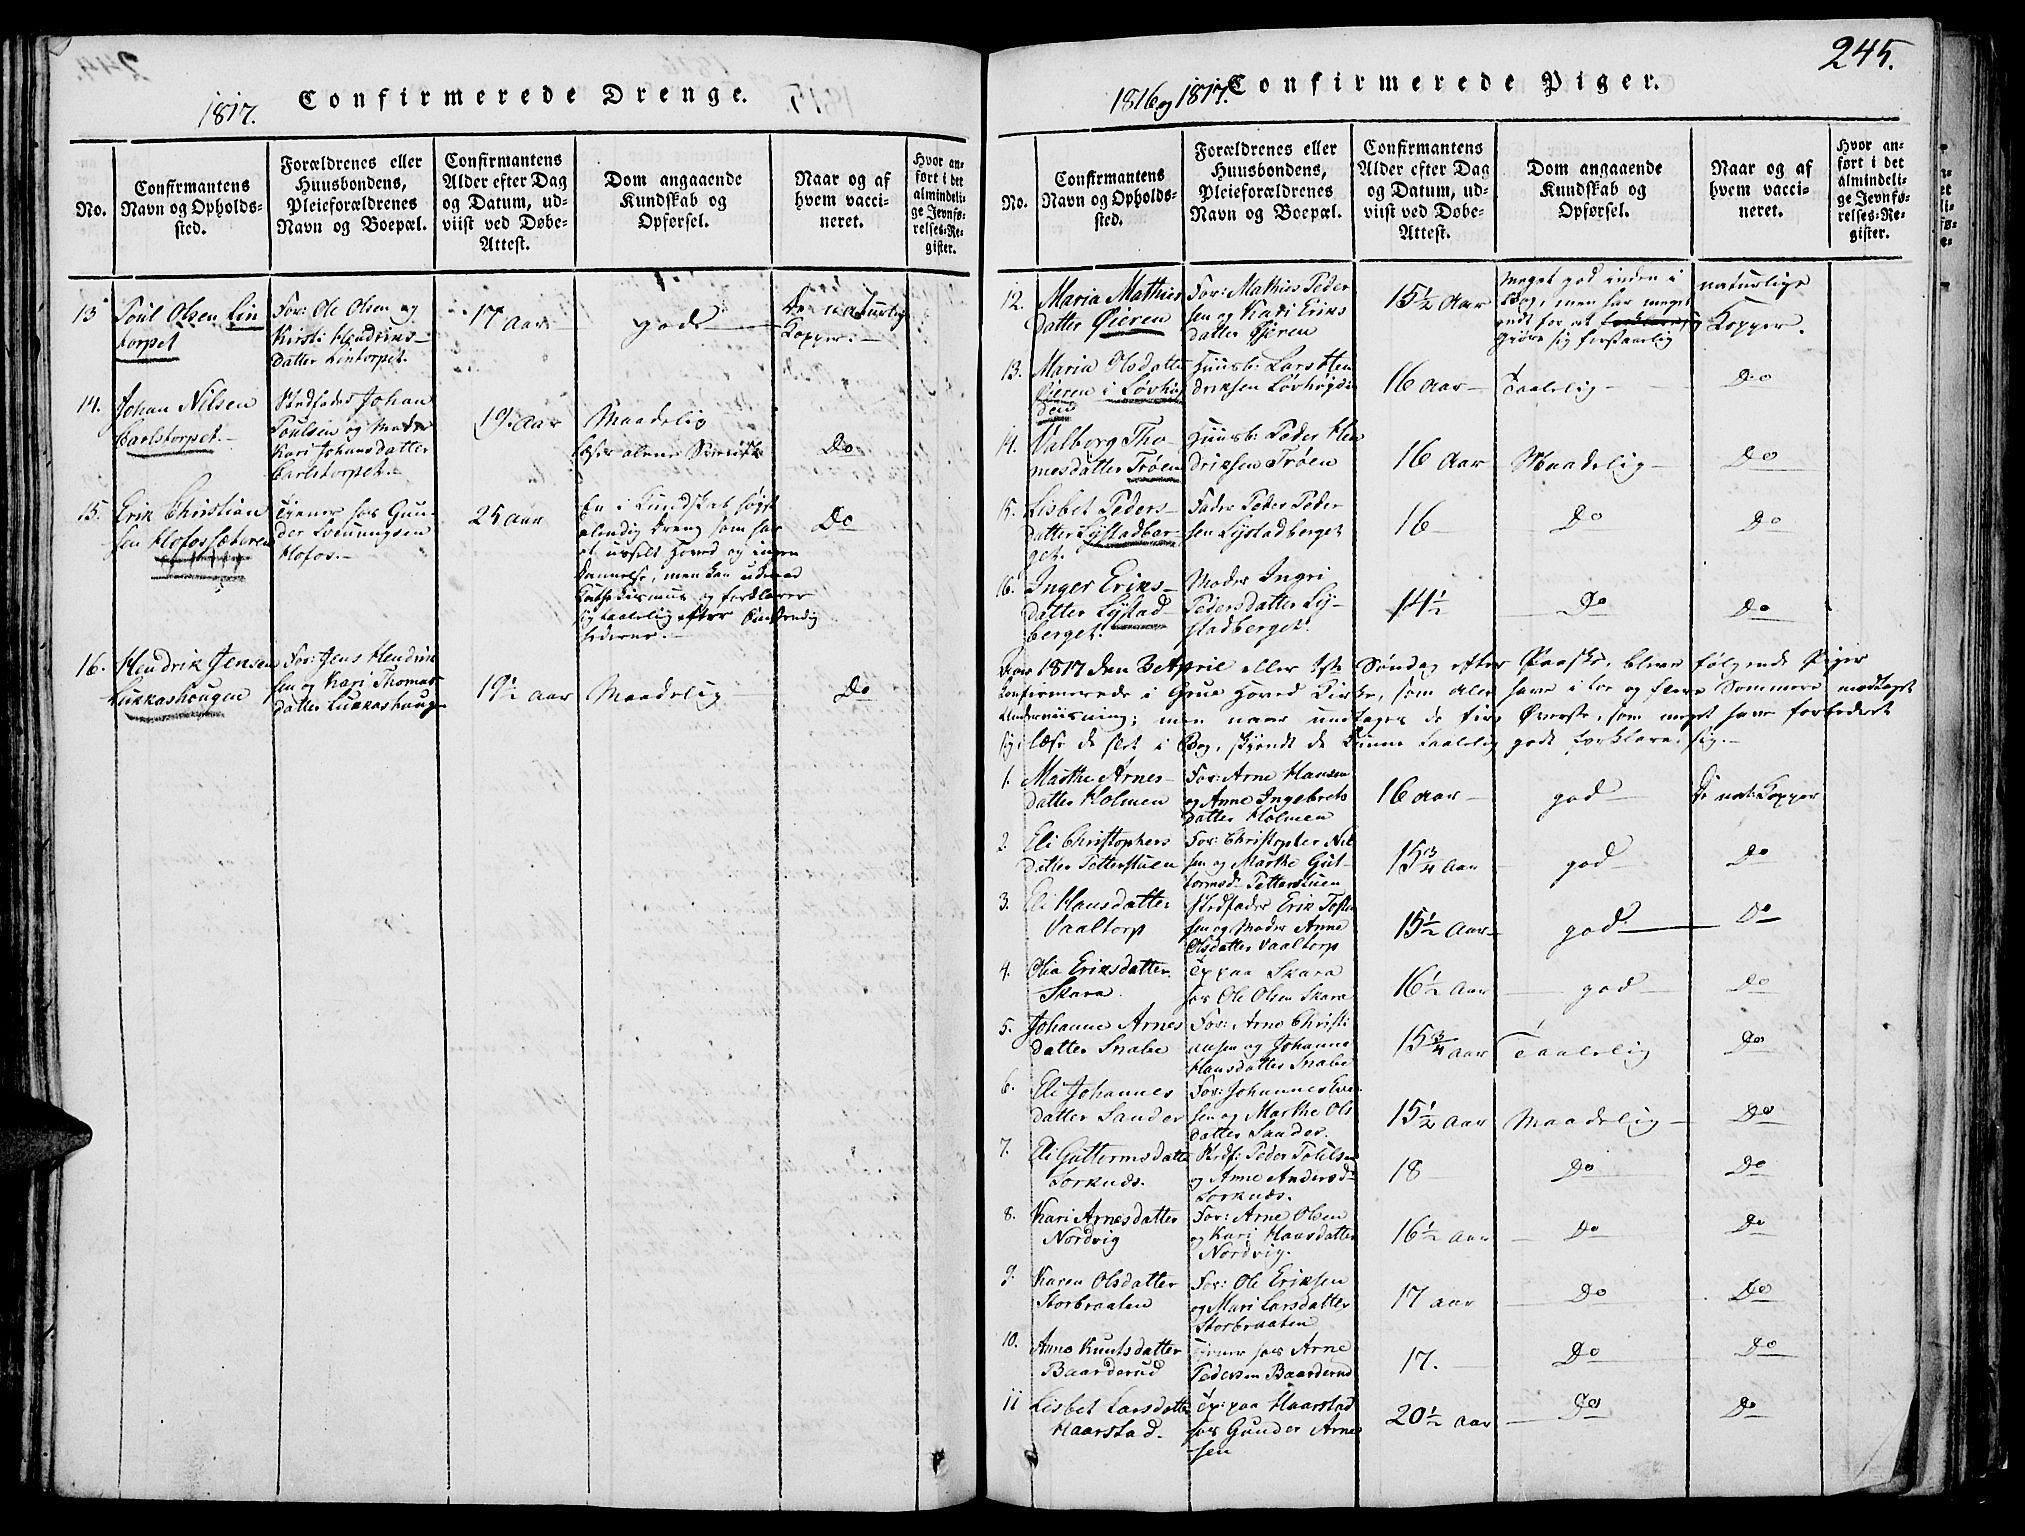 1817. Confirmerede Drenge.
No.
Confirmantens
Navn og Opholds-
sted.
Forældrenes eller
Huusbondens,
Pleieforældrenes
Navn og Boepæl.
Confirmantens
Alder efter Dag
og Datum, ud-
viist ved Døbe-
Attest.
Dom angaaende
Kundskab og
Opførsel.
Naar og af
hvem vacci-
neret.
Hvor an-
ført i det
almindeli-
ge Jevnfø-
relses-Re-
gister.
13 Poul Olsen Lin
torpet
For: Ole Olsen og
Kirsti Hendriks-
datter Lintorpet.
17 Aar
god
De naturlige
Kopper.
14. Johan Nilsen
Carlstorpet.
Stedfader Johan
Poulsen og Moder
Kari Johansdatter
Carlstorpet.
19 Aar
Maadelig
læser alene
Do
15. Erik Christian
sen Hofos sæteren
Tjener hos Gun-
der Svenningsen
Hofos.
25 Aar
En i Kundskab høist
elendig Dreng som har
et uselt Hoved og ingen
Dannelse, men kan
og forklarer
sig taalelig efter Omstændig
hederne.
Do
16. Hendrik Jensen
Lukkashougen
For: Jens Hendrik
sen og Kari Thomas
datter Lukkashoug
19½ Aar
Maadelig
Do
245.
1816 og 1817. Confirmerede Piger.
No.
Confirmantens
Navn og Opholds-
sted.
Forældrenes eller
Huusbondens,
Pleieforældrenes
Navn og Boepæl.
Confirmantens
Alder efter Dag
og Datum, ud-
viist ved Døbe-
Attest.
Dom angaaende
Kundskab og
Opførsel.
Naar og af
hvem vacci-
neret.
Hvor an-
ført i det
almindeli-
ge Jevnfø-
relses-Re-
gister.
12. Maria Mathies
datter Øieren
For: Mathies Peder
sen og Kari Eriks
datter Øieren
15½ Aar
Meget god inden i
Bog, men har meget
ondt for at
gjøre sig forstaaelig
naturlige
Kopper.
13. Maria Olsdatter
Øieren i Lövhög
den
Huusb: Lars Hen
driksen Lövhögden
16 Aar
Taalelig
Do
14. Valborg Tho-
mesdatter Trøen
Huusb: Peder Hen
driksen Trøen
16 Aar
Maadelig
Do
15. Lisbet Peders-
datter Lystadber-
get.
Fader Peder Peder
sen Lystadberget
16
Do
Do
16. Inger Eriks-
datter Lystad-
berget.
Moder Ingri
Pedersdatter Ly-
stadberget.
14½
Do
Do
Aar 1817 den 3 April eller 1ste Søndag efter Paaske, bleve følgende Piger
Confirmerede i Grue Hoved Kirke, som alle have i toe og flere Sommere modtaget
Underviisning; men naar undtages de fire Øverste, som meget have forbedret
sig, læse de slet i Bog, skjøndt de kunne taalelig godt forklare sig.
1. Marthe Arnes-
datter Holmen
For: Arne Hansen
og Anne Ingebrets
datter Holmen
16 Aar
god
De nat: Kopper
2. Eli Christophers
datter Petterstuen
For: Christopher Nil
sen og Marthe Gut-
tormsd. Petterstuen
15¾ Aar
god
Do
3. Eli Hansdatter
Vaaltorp
Stedfader Erik Tosten
sen og Moder Anne
Olsdatter Vaaltorp
15½ Aar
god
Do
4. Olia Eriksdatter
Skara.
Tj paa Skara
hos Ole Olsen Skara
16½ Aar
god
Do
5. Johanne Arnes
datter Snabe
For: Arne Christi
ansen og Johanne
Hansdatter Snabe
15¾ Aar
Taalelig
Do
6. Eli Johannes
datter Sander
For: Johannes
sen og Marthe Ols
datter Sander.
15½ Aar
Maadelig
Do
7. Eli Guttormsdatter
Lorknæs.
Stedf: Peder Poulsen
og Anne Andersd
Lorknæs.
18
Do
Do
8. Kari Arnesdatter
Nordvig
For: Arne Olsen
og Kari Hansdatter
Nordvig.
16½ Aar
Do
Do
9. Karen Olsdatter
Storbraaten
For: Ole Eriksen
og Mari Larsdatter
Storbraaten
17 Aar
Do
Do
10. Anne Knutsdatter
Baarderud
Tjener hos Arne
Pedersen Baarderud
17.
Do
Do
11 Lisbet Larsdatter
Haarstad.
Tj: paa Haarstad
hos Gunder Arne
sen
20½ Aar
Do
Do